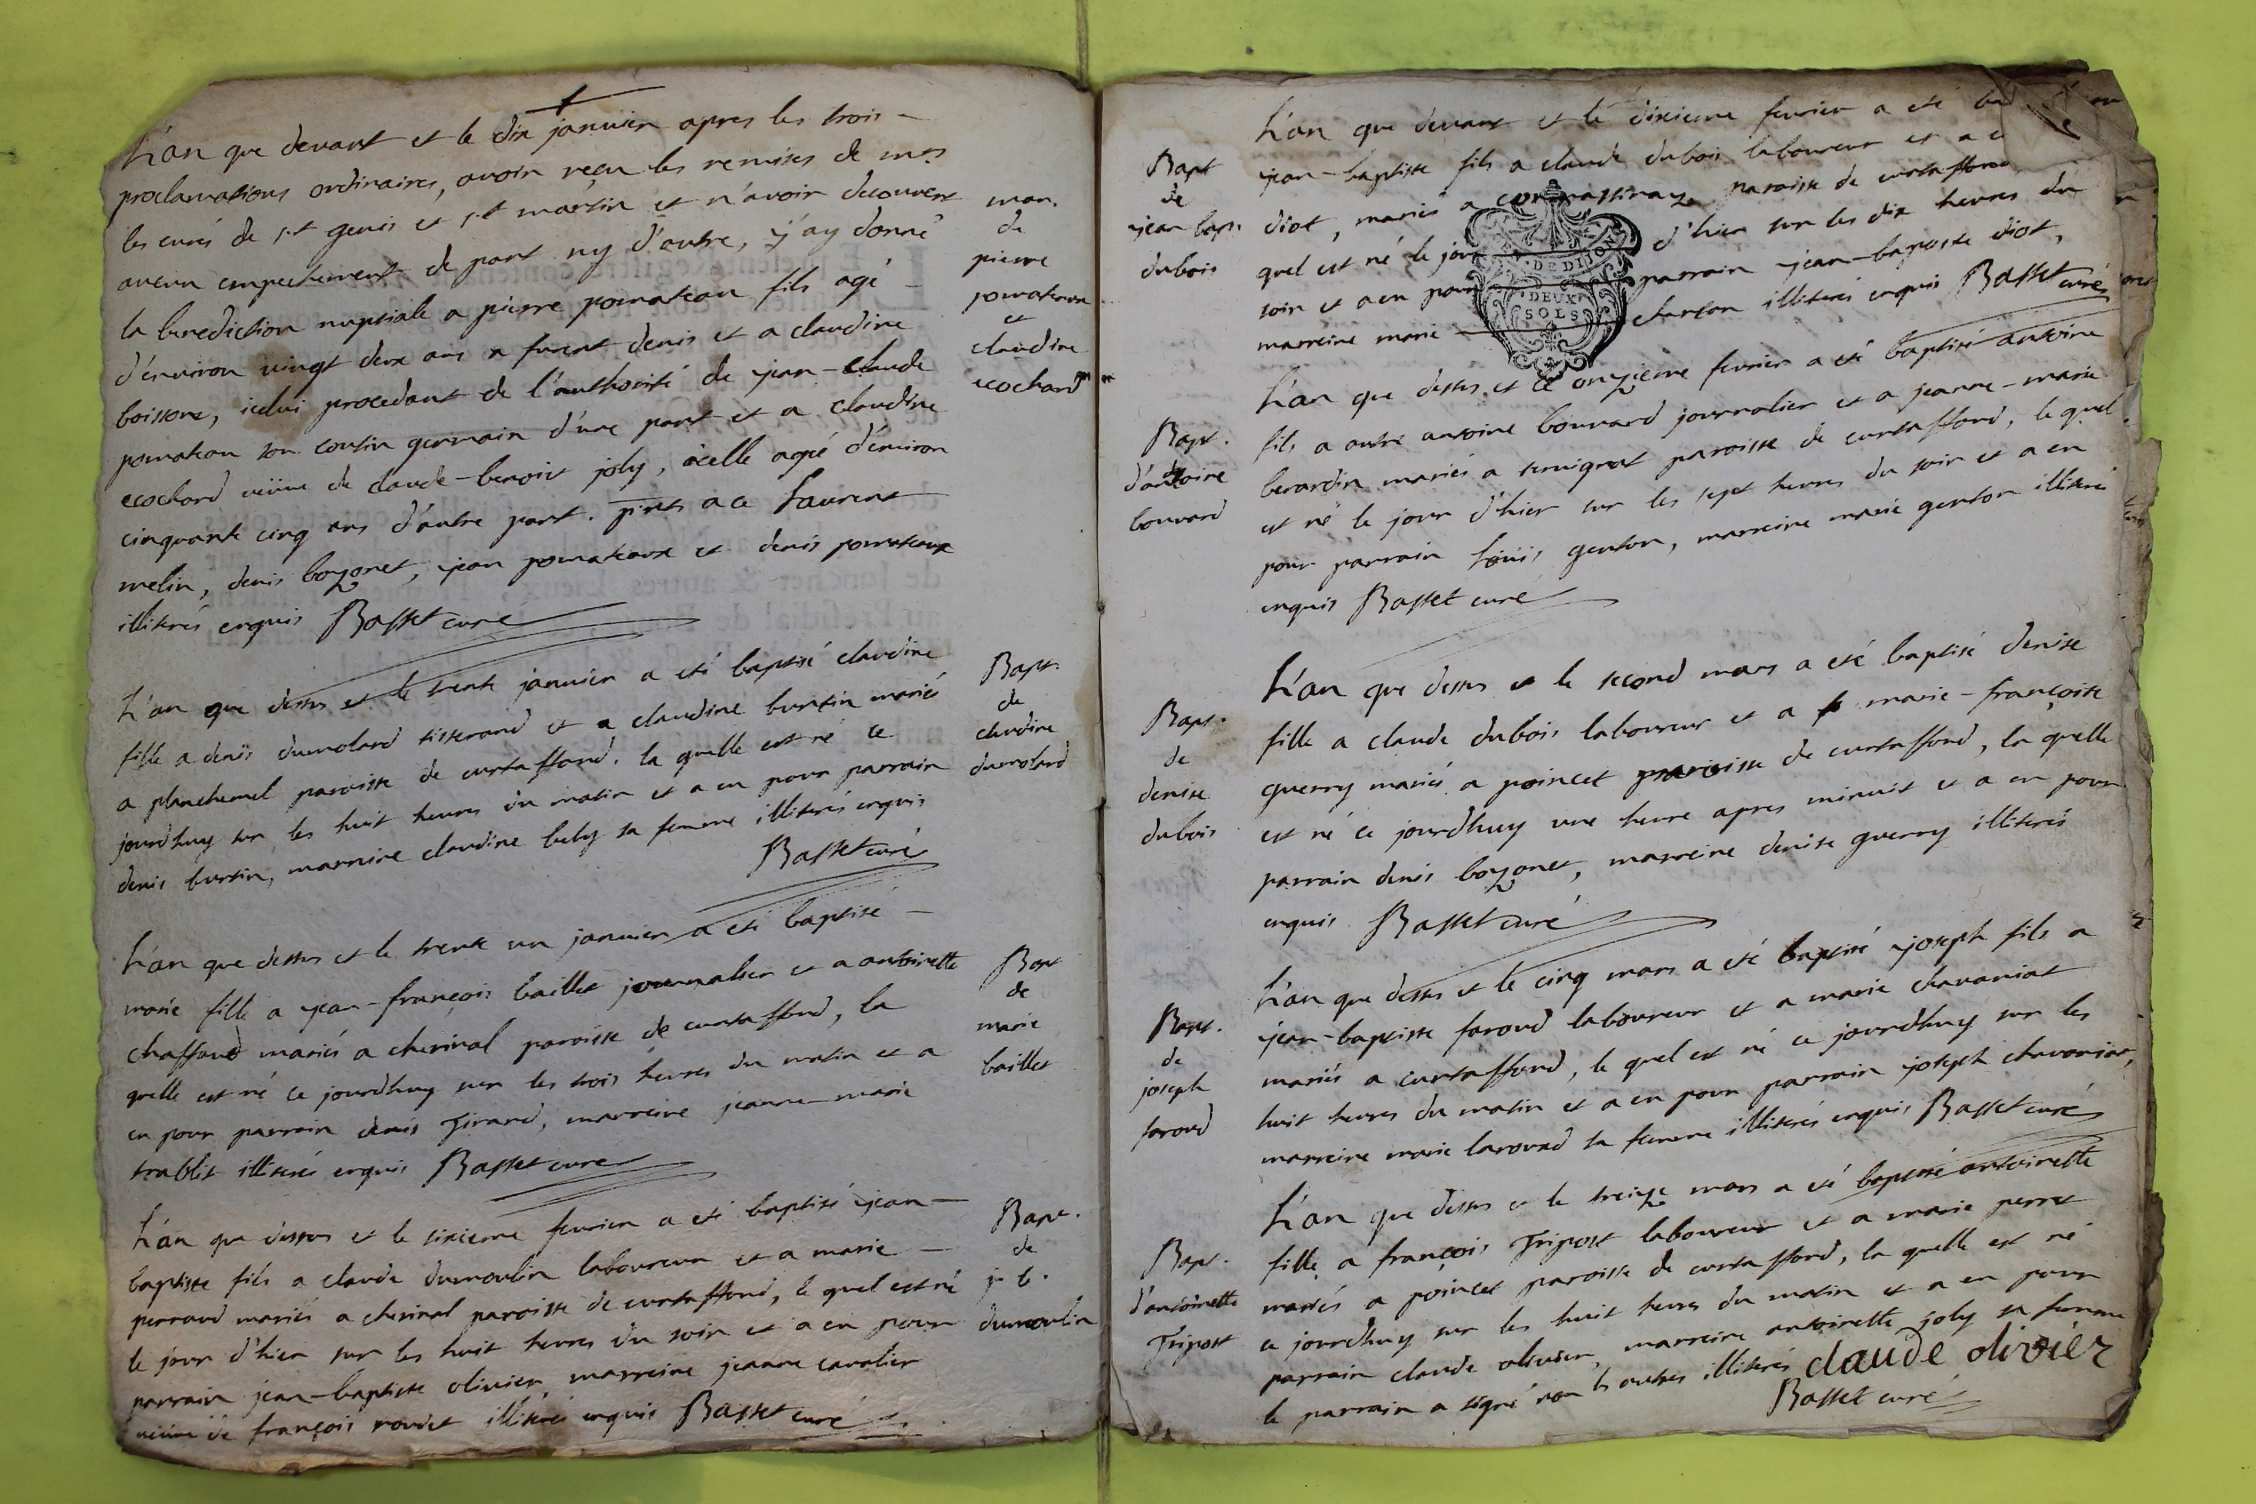 L'an que devant et le dix janvier apres les trois
proclamations ordinaires, avoir reçu les remises de mrs
les curés de st genis et st martin et n'avoir decouvert
aucun empechement de part ny d'autre, j'ay donné
la benediction nuptiale a pierre pomateau fils agé
d'environ vingt deux ans a furent denis et a claudine
boissone, icelui procedant de l'authorité de jean-claude
pomateau son cousin germain d'une part et a claudine
ecochard veüve de claude-benoit joly, icelle agée d'environ
cinquante cinq ans d'autre part. pnts a ce Laurent
melin, denis boyonet, jean pomateaux et denis pomateaux
illiterés enquis Basset curé
mar.
de
pierre
pomateau
et
claudine
ecochard
L'an que dessus et le trente janvier a eté baptisé claudine
fille a denis dumolard tisserand et a claudine burtin mariés
a planchemel paroisse de curtaffond. la quelle est né ce
jourdhuy sur les huit heures du matin et a eu pour parrain
denis burtin, marreine claudine buly sa femme illiterés enquis
Basset curé
Bapt.
de
claudine
dumolard
L'an que dessus et le trente un janvier a eté baptisé
marie fille a jean-françois baillet journalier et a antoinette
chaffaud mariés a cherinal paroisse de curtaffond, la
quelle est né ce jourdhuy sur les trois heures du matin et a
eu pour parrain denis Tirand, marreine jeanne-marie
trablit illiterés enquis Basset curé
Bapt
de
marie
baillet
L'an que dessus et le sixieme fevrier a eté baptisé jean-
baptiste fils a claude dumoulin laboureur et a marie
perraud mariés a cherinal paroisse de curtaffond, le quel est né
le jour d'hier sur les huit heures du soir et a eu pour
parrain jean-baptiste olivier, marreine jeanne cavalier
veüve de françois rondet illiterés enquis Basset curé
Bapt.
de
j. b.
dumoulin
L'an que devant et le dixieme fevrier a eté
jean-baptiste fils a claude dubois laboureur et a
diot, mariés a paroisse de curtaffond
quel est né le jour d'hier sur les dix heures du
soir et a eu pour parrain jean-baptiste diot,
marreine marie charton illiterés enquis Basset curé
Bapt
de
jean bapt.
dubois
DE DIJON
DEUX
SOLS
L'an que dessus et le onzieme fevrier a eté baptisé antoine
fils a autre antoine bouvard journalier et a jeanne-marie
berardin mariés a semignat paroisse de curtaffond, le quel
est né le jour d'hier sur les sept heures du soir et a eu
pour parrain Loüis genton, marreine marie genton illiterés
enquis Basset curé
Bapt.
d'antoine
bouvard
L'an que dessus et le second mars a eté baptisé denise
fille a claude dubois laboureur et a marie-françoise
guerry mariés a poincet paroisse de curtaffond, la quelle
est né ce jourdhuy une heure apres minuit et a eu pour
parrain denis boyonet, marreine denise guerry illiterés
enquis Basset curé
Bapt.
de
denise
dubois
L'an que dessus et le cinq mars a eté baptisé joseph fils a
jean-baptiste faroud laboureur et a marie chavaniat
mariés a curtaffond, le quel est né ce jourdhuy sur les
huit heures du matin et a eu pour parrain joseph chavaniat,
marreine marie larouad sa femme illiterés enquis Basset curé
Bapt.
de
joseph
faroud
L'an que dessus et le treize mars a eté baptisé antoinette
fille a françois Tripost laboureur et a marie perret
mariés a poincet paroisse de curtaffond, la quelle est né
ce jourdhuy sur les huit heures du matin et a eu pour
parrain claude olivier, marreine antoinette joly sa femme
le parrain a signé non les autres illiterés claude olivier
Basset curé
Bapt.
d'antoinette
Tripost